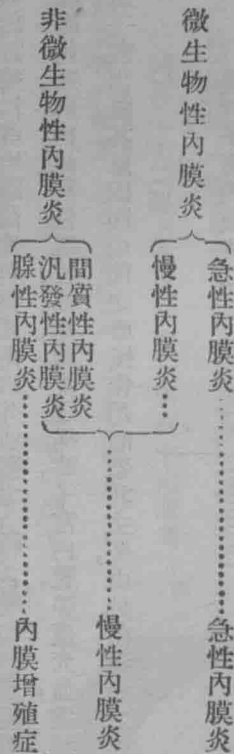 微生物性內膜炎
急性內膜炎……急性內膜炎
慢性內膜炎……慢性內膜炎
非微生物性內膜炎
間質性內膜炎
汎發性內膜炎
腺性內膜炎……內膜增殖症